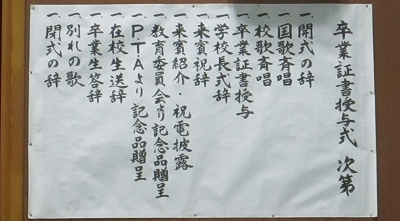 卒業証書授与式 次第
一開式の辞
一国歌斉唱
一校歌斉唱
一卒業証書授与
一学校長式辞
一来賓祝辞
一来賓紹介・祝電披露
一教育委員会より記念品贈呈
一PTAより記念品贈呈
一在校生送辞
一卒業生答辞
一別れの歌
一閉式の辞